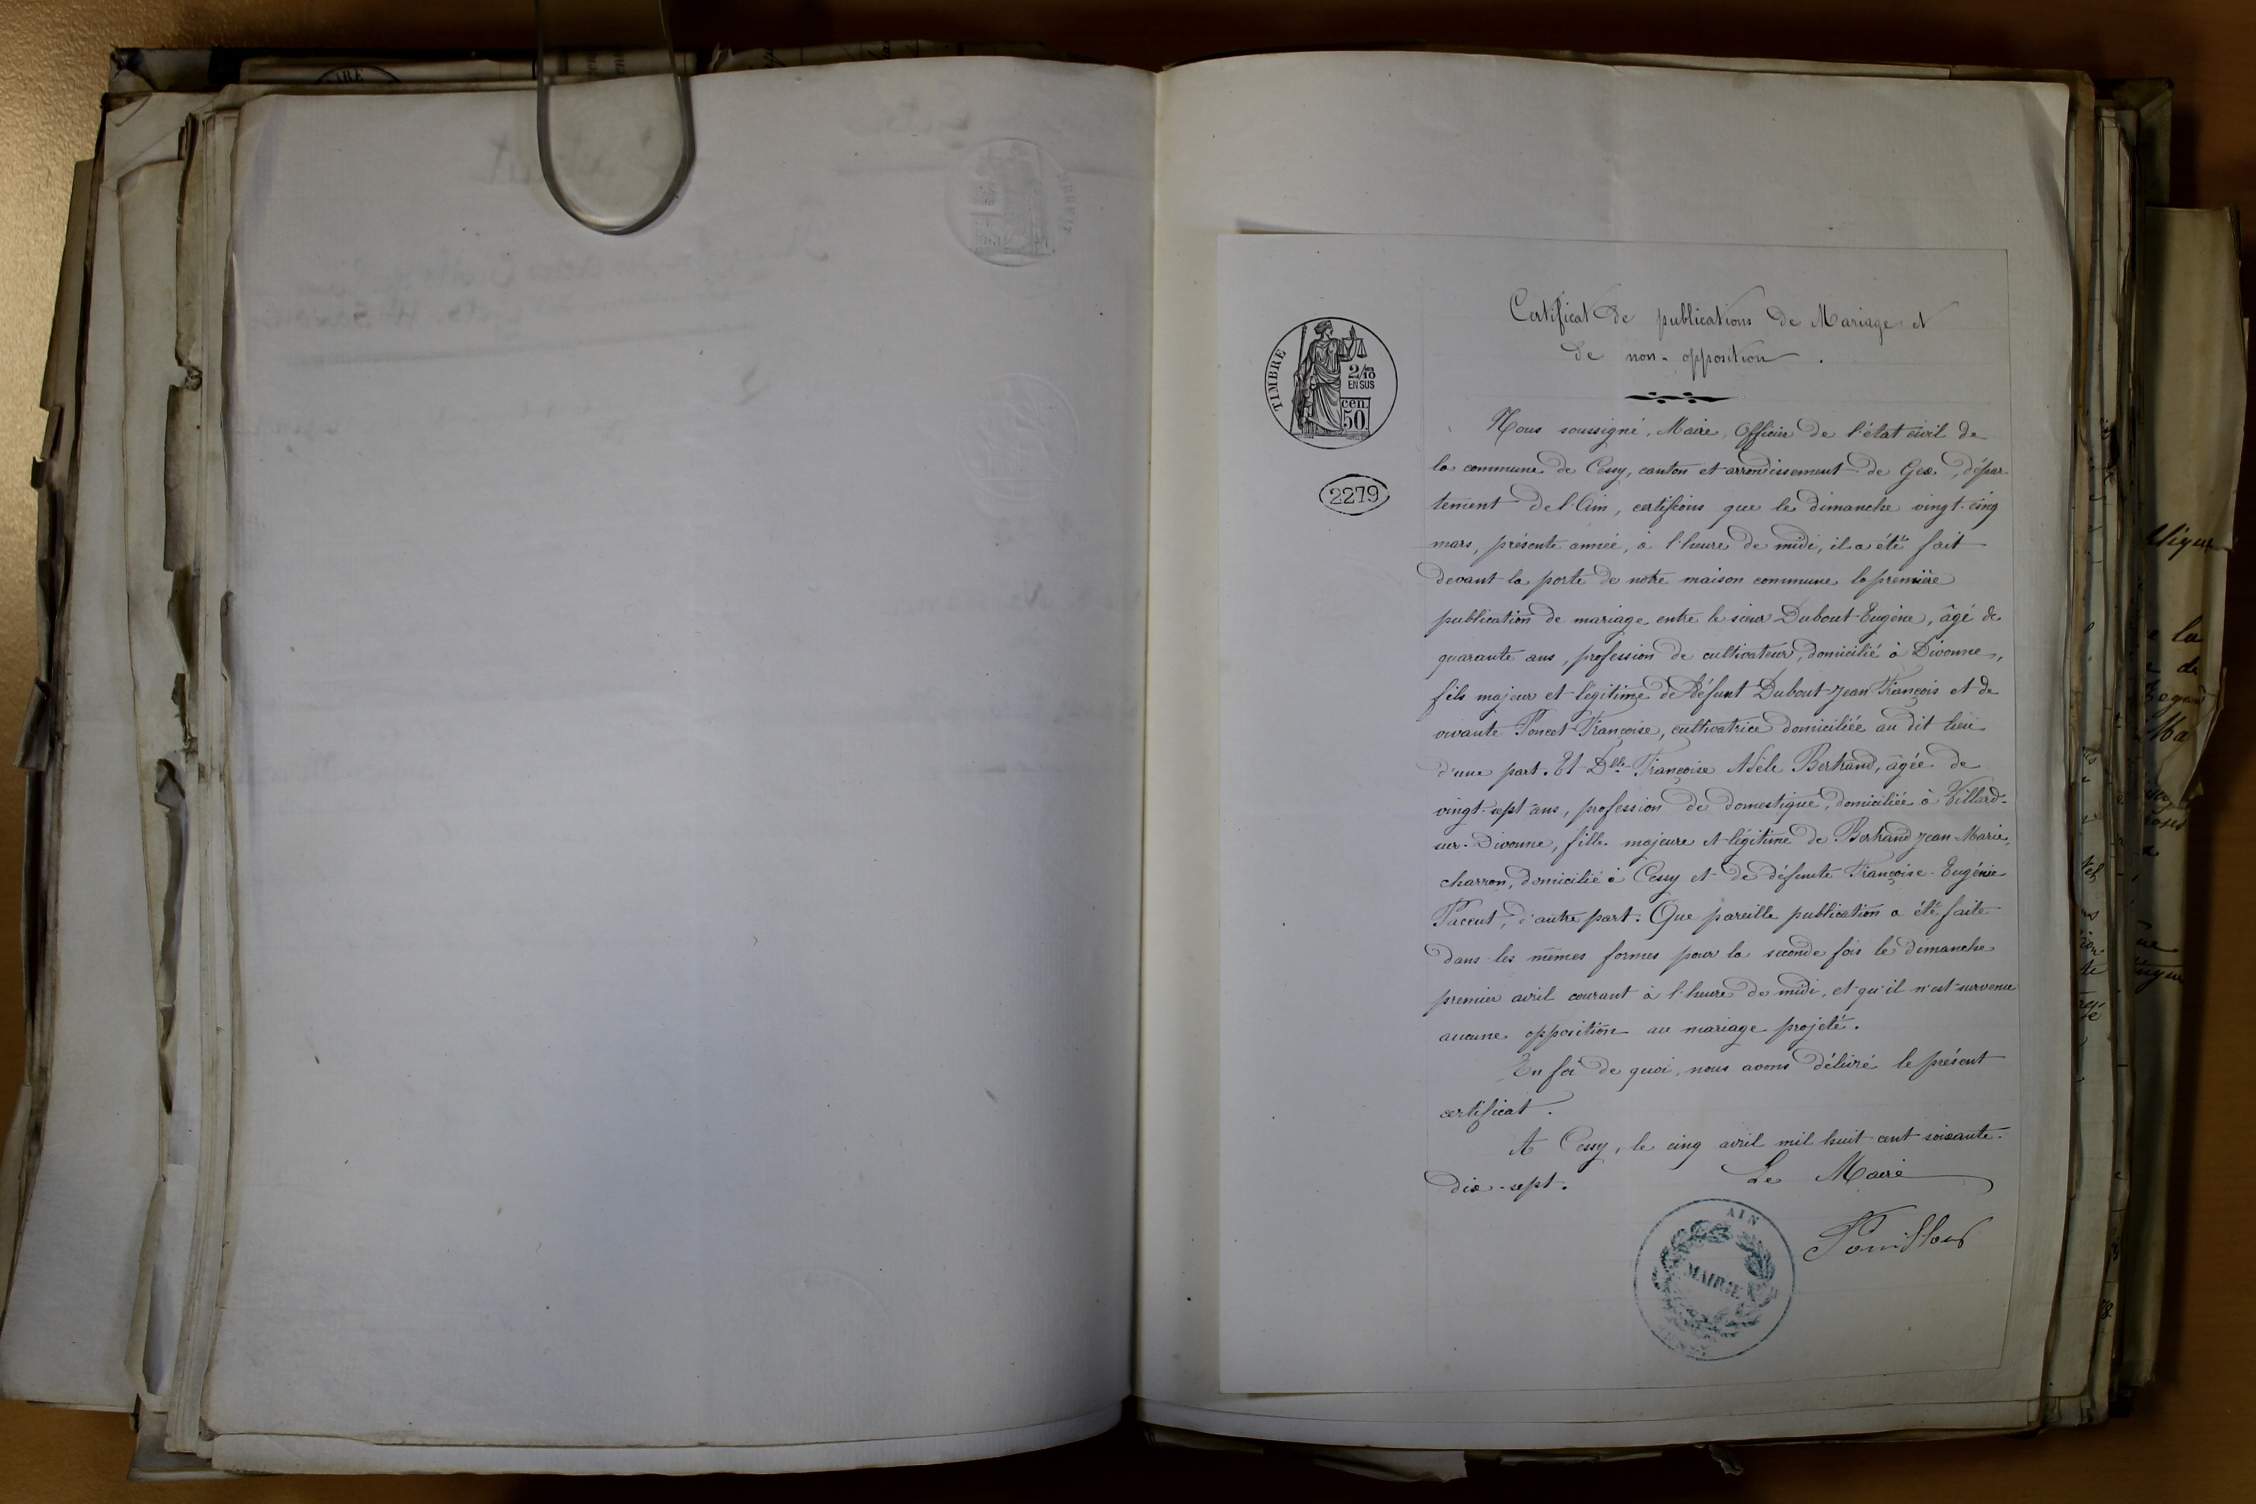 Certificat de publications de Mariage et
de non-opposition.
TIMBRE
2/10
EN SUS
cen.
50
2279
Nous soussigné, Maire, Officier de l'état civil de
la commune de Cessy, canton et arrondissement de Gex, dépar-
tement de l'Ain, certifions que le dimanche vingt-cinq
mars, présente année, à l'heure de midi, il a été fait
devant la porte de notre maison commune la première
publication de mariage entre le sieur Dubout Eugène, âgé de
quarante ans, profession de cultivateur, domicilié à Divonne,
fils majeur et légitime de défunt Dubout Jean François et de
vivante Poncet Françoise, cultivatrice domiciliée au dit lieu
d'une part. Et Dlle Françoise Adèle Bertrand, âgée de
vingt-sept ans, profession de domestique, domiciliée à Villard-
sur-Divonne, fille majeure et légitime de Bertrand Jean-Marie,
charron, domicilié à Cessy et de défunte Françoise-Eugénie
Paccut, d'autre part. Que pareille publication a été faite
dans les mêmes formes pour la seconde fois le dimanche
premier avril courant à l'heure de midi, et qu'il n'est survenu
aucune opposition au mariage projeté.
En foi de quoi, nous avons délivré le présent
certificat.
A Cessy, le cinq avril mil huit cent soixante-
dix-sept.
Le Maire
AIN
MAIRIE